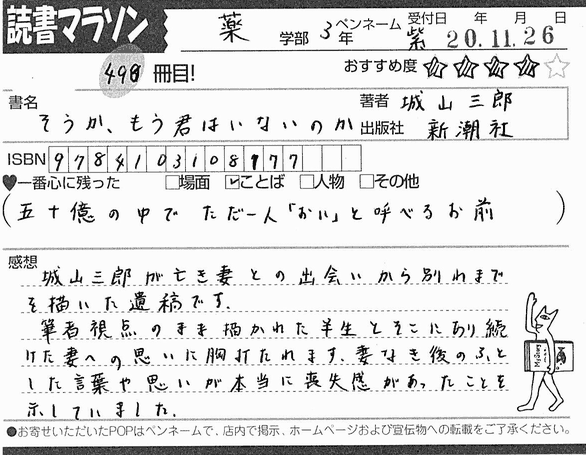 読書マラソン
薬 学部 3年 ペンネーム 紫 受付日 年 月 日 20.11.26
498 冊目! おすすめ度 ★★★★☆
書名 そうか、もう君はいないのか 著者 城山三郎
出版社 新潮社
ISBN 9784103108177
♥一番心に残った □場面 ☑ことば □人物 □その他
(五十億の中でただ一人「おい」と呼べるお前)
感想
城山三郎が亡き妻との出会いから別れまで
を描いた遺稿です.
筆者視点のまま描かれた半生とそこにあり続
けた妻への思いに胸打たれます.妻なき後のふと
した言葉や思いが本当に喪失感があったことを
示していました.
●お寄せいただいたPOPはペンネームで、店内で掲示、ホームページおよび宣伝物への転載をご了承ください。